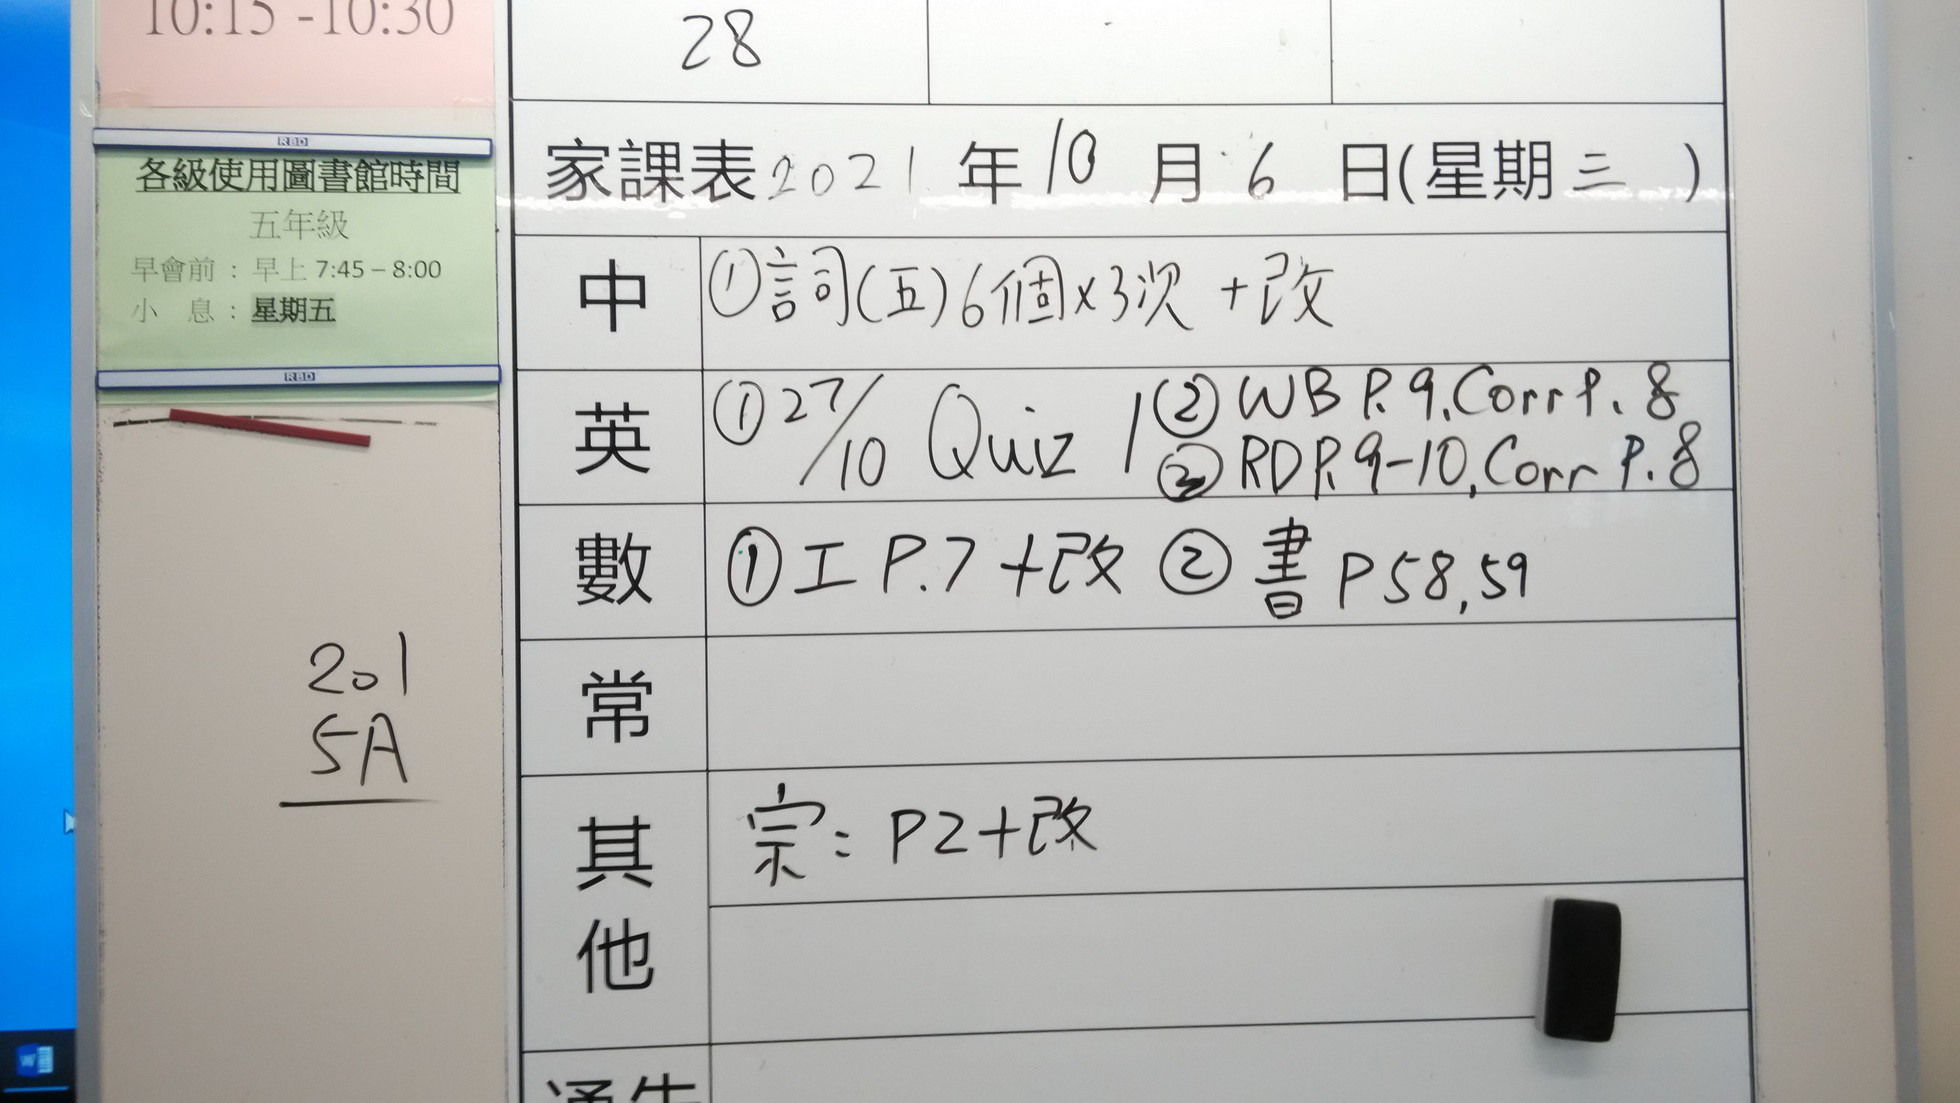 10:15 -10:30
RBD
各級使用圖書館時間
五年級
早會前 : 早上 7:45 – 8:00
小 息 : 星期五
RBD
201
5A
28
家課表2021年10月6日(星期三)
中 ①詞(五)6個×3次 +改
英 ①27/10 Quiz 1 ②WB P.9,Corr P.8
③RD P.9-10,Corr P.8
數 ①工 P.7 +改 ②書 P58,59
常
其他 宗: P2+改
通告